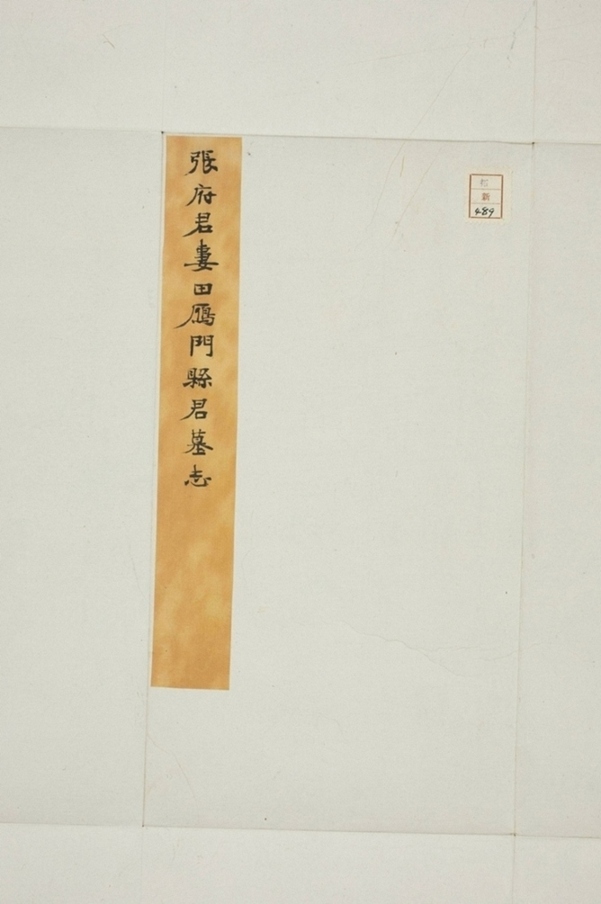 張府君妻田鴈門縣君墓志
新
489